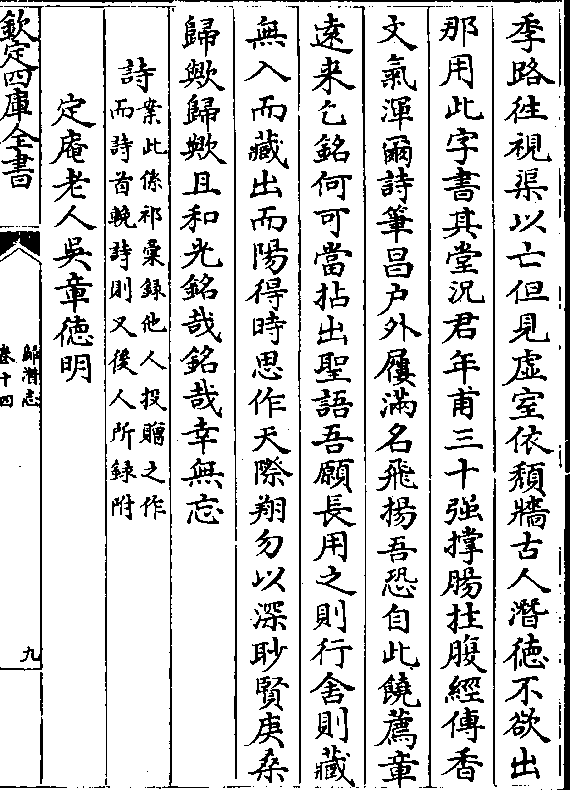 季路徃視渠以亡但見虚室依頽牆古人潛徳不欲出
那用此字書其堂況君年甫三十強撑腸拄腹經傳香
文氣渾爾詩筆昌户外屨滿名飛揚吾恐自此饒薦章
逺来乞銘何可當拈出聖語吾願長用之則行舍則藏
無入而藏出而陽得時思作天際翔勿以深眇賢庚桑
歸歟歸歟且和光銘哉銘哉幸無忘
詩
案此係祁彚録他人投贈之作
而詩首輓詩則又後人所録附
定庵老人吳章徳明
欽定四庫全書
歸潛志
卷十四
九